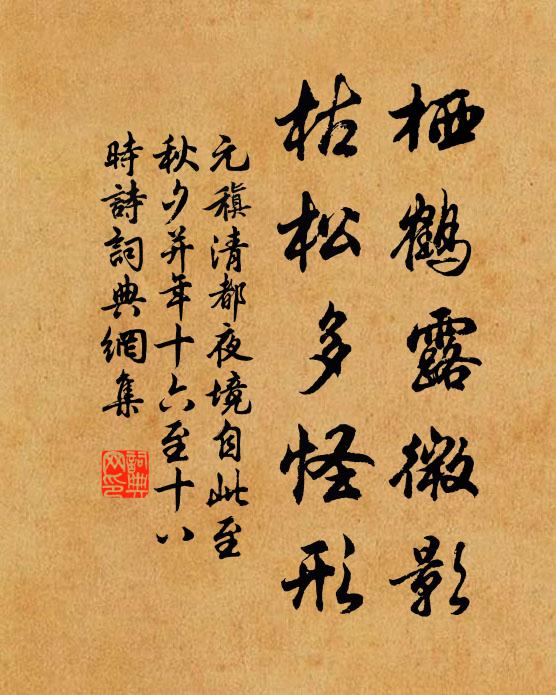 栖鶴露微影
枯松多怪形
元稹清都夜境自此至
秋夕并年十六至十八
時詩詞典網集
詞典
网印